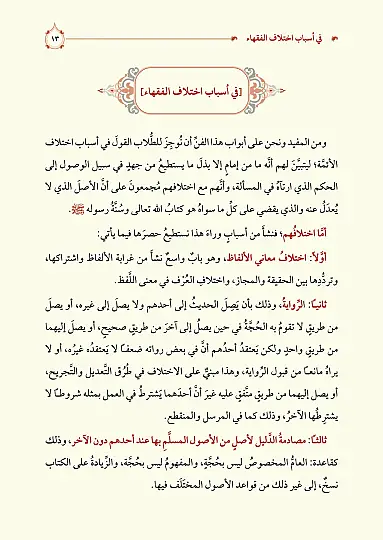 في أسباب اختلاف الفقهاء
١٣
[في أسباب اختلاف الفقهاء]
ومن المفيد ونحن على أبواب هذا الفنِّ أن نُوجِزَ للطُّلاب القولَ في أسباب اختلاف
الأئمَّة؛ ليتبيَّنَ لهم أنَّه ما من إمامٍ إلا بذلَ ما يستطيعُ من جهدٍ في سبيل الوصول إلى
الحكم الذي ارتآهُ في المسألة، وأنَّهم مع اختلافهم مُجمِعونَ على أنَّ الأصلَ الذي لا
يُعدَلُ عنه والذي يقضي على كلِّ ما سواهُ هو كتابُ الله تعالى وسُنَّةُ رسوله ﷺ.
أمَّا اختلافُهم؛ فنشأَ من أسبابٍ وراءَ هذا نستطيعُ حصرَها فيما يأتي:
أوَّلاً: اختلافُ معاني الألفاظ، وهو بابٌ واسعٌ نشأَ من غرابة الألفاظ واشتراكها،
وتردُّدِها بين الحقيقة والمجاز، واختلافِ العُرْف في معنى اللَّفظ.
ثانياً: الرِّوايةُ، وذلك بأن يَصِلَ الحديثُ إلى أحدهم ولا يصلَ إلى غيره، أو يصلَ
من طريقٍ لا تقومُ به الحُجَّةُ في حين يصلُ إلى آخرَ من طريقٍ صحيحٍ، أو يصلَ إليهما
من طريقٍ واحدٍ ولكن يَعتقدُ أحدُهم أنَّ في بعض رواته ضعفاً لا يَعتقدُه غيرُه، أو لا
يراهُ مانعاً من قبول الرِّواية، وهذا مبنيٌّ على الاختلاف في طُرُق التَّعديل والتَّجريح،
أو يصل إليهما من طريقٍ متَّفقٍ عليه غيرَ أنَّ أحدَهما يَشترطُ في العمل بمثله شروطاً لا
يشترطُها الآخرُ، وذلك كما في المرسل والمنقطع.
ثالثاً: مصادمةُ الدَّليل لأصلٍ من الأصول المسلَّم بها عند أحدهم دون الآخر، وذلك
كقاعدة: العامُّ المخصوصُ ليس بحُجَّةٍ، والمفهومُ ليس بحُجَّة، والزِّيادةُ على الكتاب
نسخٌ، إلى غير ذلك من قواعد الأصول المختَلَف فيها.